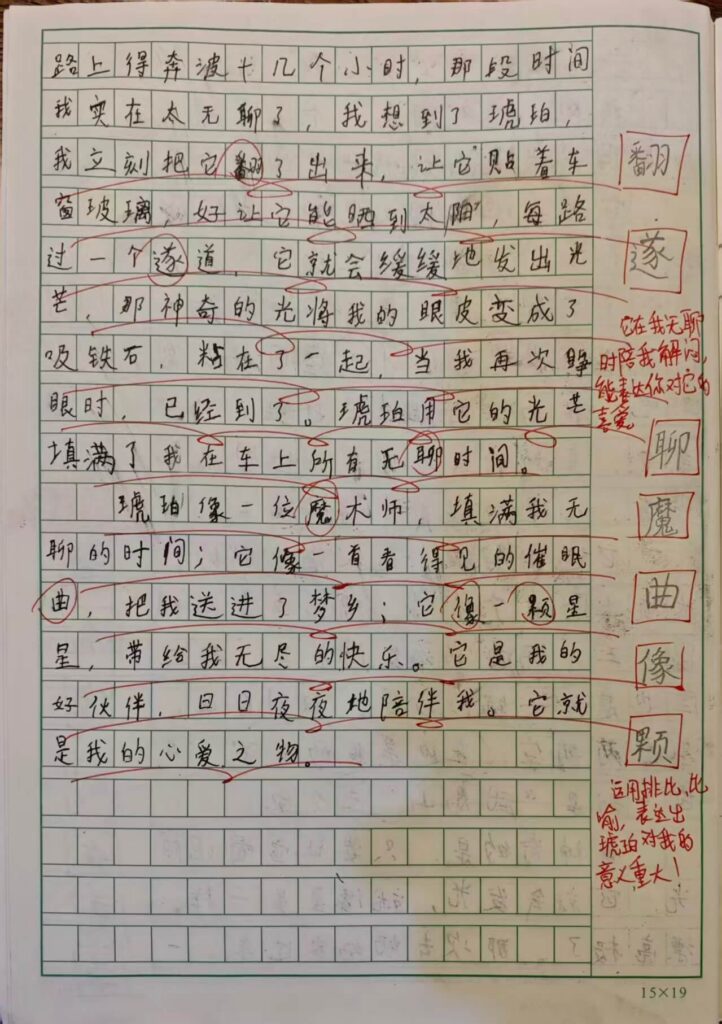 路上得奔波十几个小时，那段时间
我实在太无聊了，我想到了琥珀，
我立刻把它翻了出来，让它贴着车
窗玻璃，好让它能晒到太阳，每路
过一个遂道，它就会缓缓地发出光
芒，那神奇的光将我的眼皮变成了
吸铁石，粘在了一起，当我再次睁
眼时，已经到了。琥珀用它的光芒
填满了我在车上所有无聊时间。
琥珀像一位魔术师，填满我无
聊的时间；它像一首看得见的催眠
曲，把我送进了梦乡；它像一颗星
星，带给我无尽的快乐。它是我的
好伙伴，日日夜夜地陪伴我。它就
是我的心爱之物。
翻
遂
它在我无聊
时陪我解闷，
能表达你对它的
喜爱
聊
魔
曲
像
颗
运用排比、比
喻，表达出
琥珀对我的
意义重大！
15×19